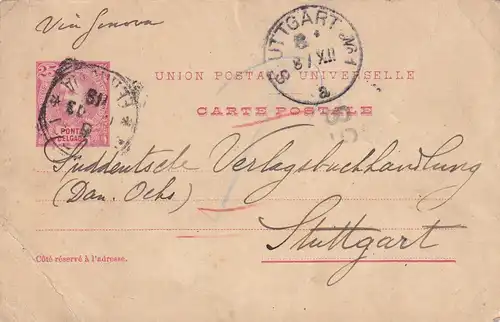 Via Genova
STUTTGART No 1
8/XII
a
25
PONTA
DELGADA
UNION POSTALE UNIVERSELLE
CARTE POSTALE
Süddeutsche Verlagsbuchhandlung
(Dan. Ochs)
Stuttgart
Côté réservé à l'adresse.